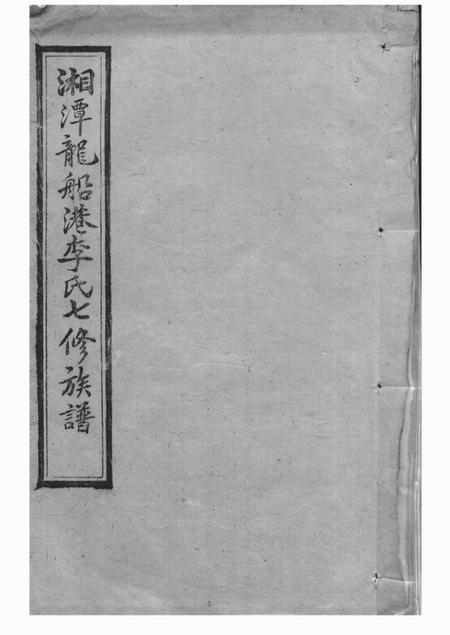 湘潭龍船港李氏七修族譜